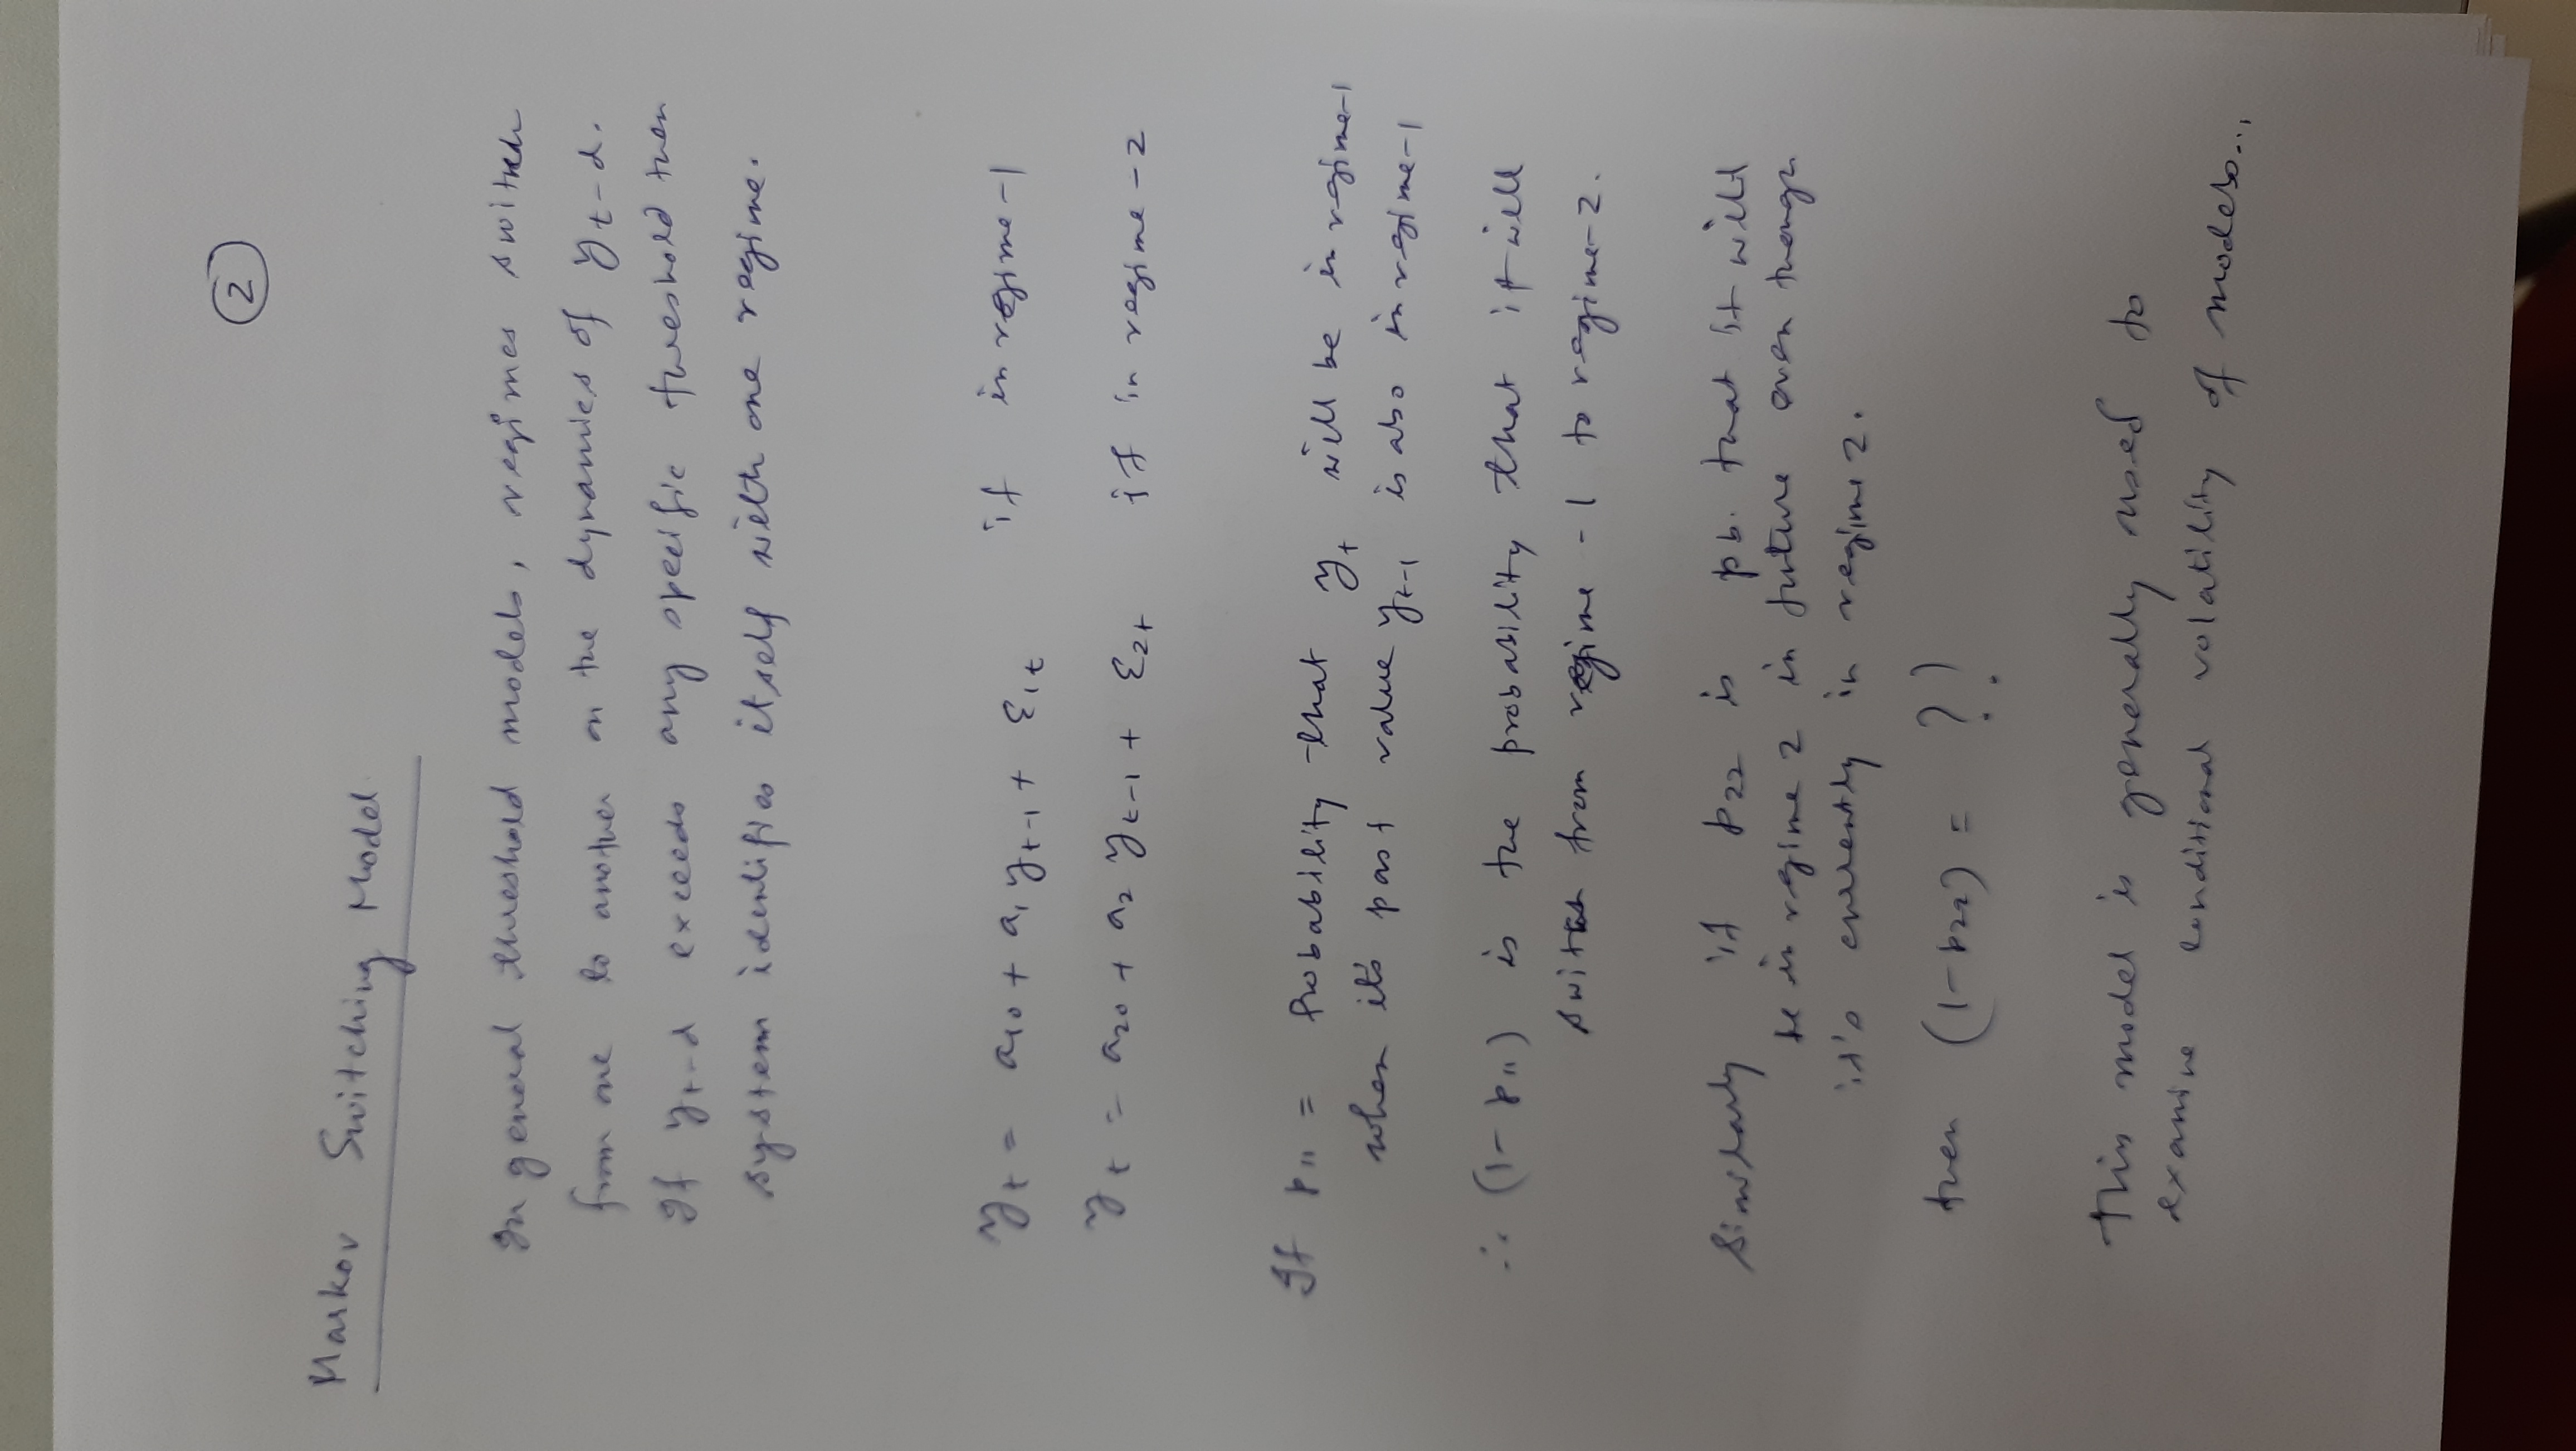 2
Markov Switching Model
In general threshold models, regimes switch
from one to another on the dynamics of yt-d.
If yt-d exceeds any specific threshold then
system identifies itself with one regime.
yt = a10 + a1 yt-1 + ε1t if in regime-1
yt = a20 + a2 yt-1 + ε2t if in regime-2
If p11 = Probability that yt will be in regime-1
when it's past value yt-1 is also in regime-1
∴ (1-p11) is the probability that it will
switch from regime-1 to regime-2.
Similarly if p22 is pb. that it will
be in regime 2 in future even though
it's currently in regime 2.
then (1-p22) = ??
This model is generally used to
examine conditional volatility of models...